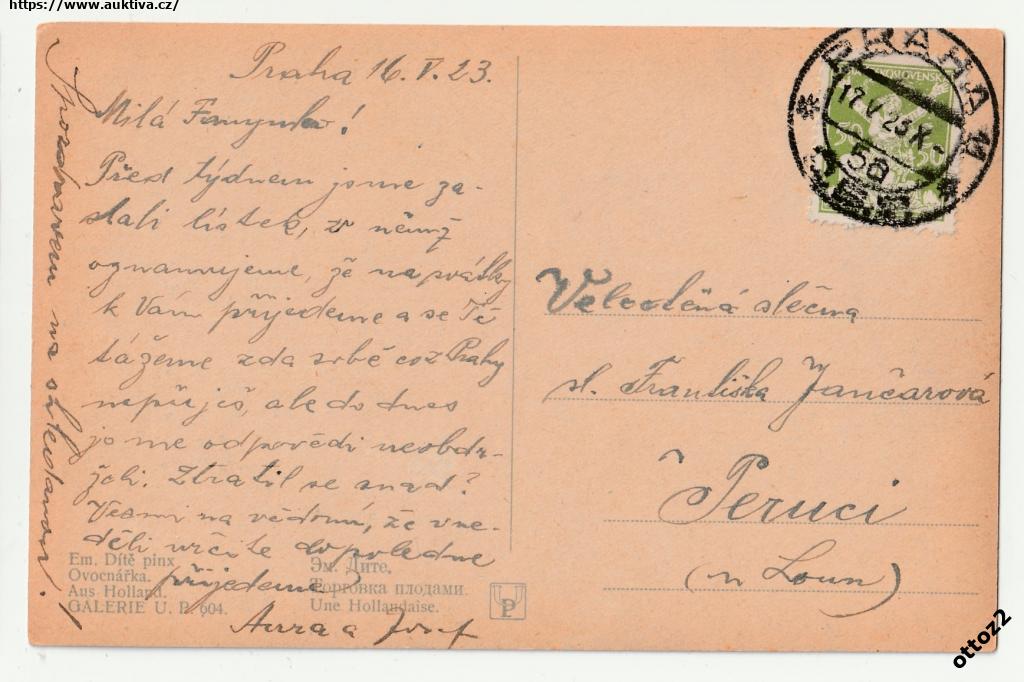 https://www.auktiva.cz/
Praha 16. V. 23.
Milá
Před týdnem jsme za-
slali lístek, v němž
oznamujeme, že na svátky
k Vám přijedeme a se Tě
tážeme zda sobě což Prahy
nepřeješ, ale do dnes
jsme odpovědi neobdr-
želi. Ztratil se snad?
Vezmi na vědomí, že v ne-
děli určitě dopoledne
přijedeme
Anna a Josef
S pozdravem na shledanou!
PRAHA
17. V 23
5a
ČESKOSLOVENSKÁ
50 50
Velectěná slečna
sl. Františka Jančarová
v Peruci
(u Loun)
Em. Dítě pinx.
Ovocnářka.
Aus Holland.
GALERIE U. P. 604.
Эм. Дите.
Торговка плодами.
Une Hollandaise.
UP
ottoz2